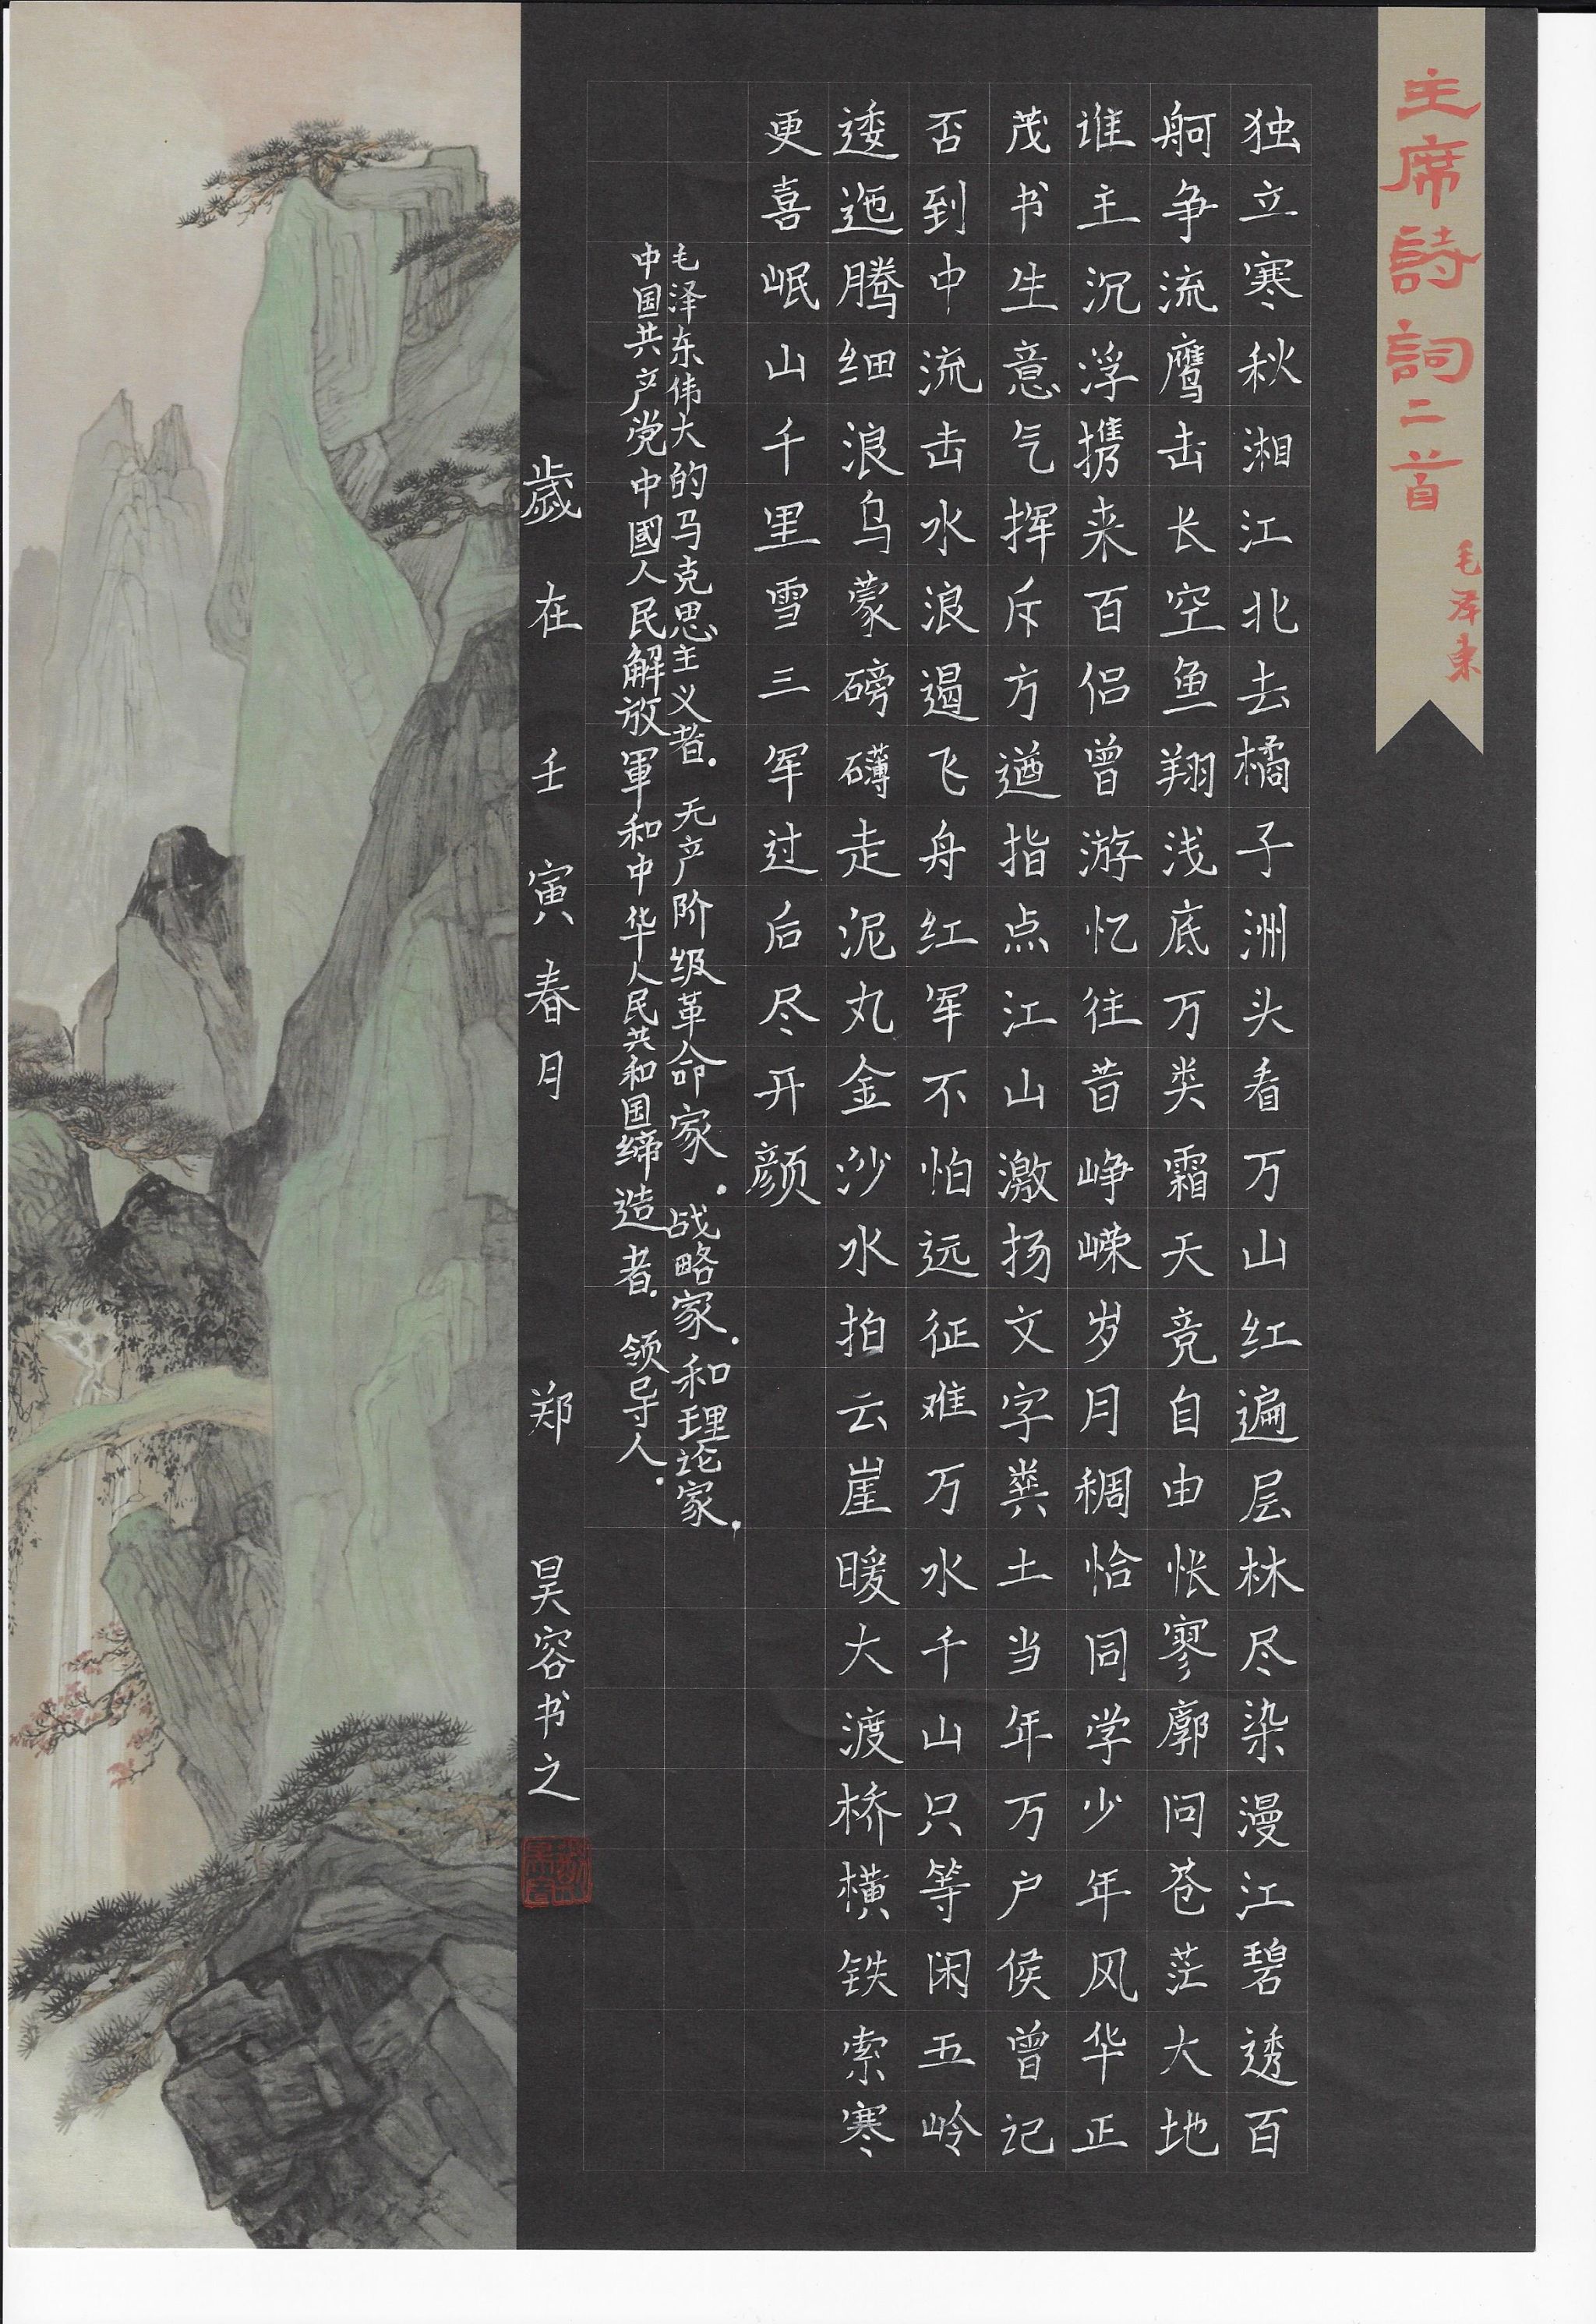 主席詩詞二首
毛泽东
独立寒秋湘江北去橘子洲头看万山红遍层林尽染漫江碧透百
舸争流鹰击长空鱼翔浅底万类霜天竞自由怅寥廓问苍茫大地
谁主沉浮携来百侣曾游忆往昔峥嵘岁月稠恰同学少年风华正
茂书生意气挥斥方遒指点江山激扬文字粪土当年万户侯曾记
否到中流击水浪遏飞舟红军不怕远征难万水千山只等闲五岭
逶迤腾细浪乌蒙磅礴走泥丸金沙水拍云崖暖大渡桥横铁索寒
更喜岷山千里雪三军过后尽开颜
毛泽东伟大的马克思主义者.无产阶级革命家.战略家.和理论家.
中国共产党中國人民解放軍和中华人民共和国缔造者.领导人.
歲在壬寅春月 郑昊容书之